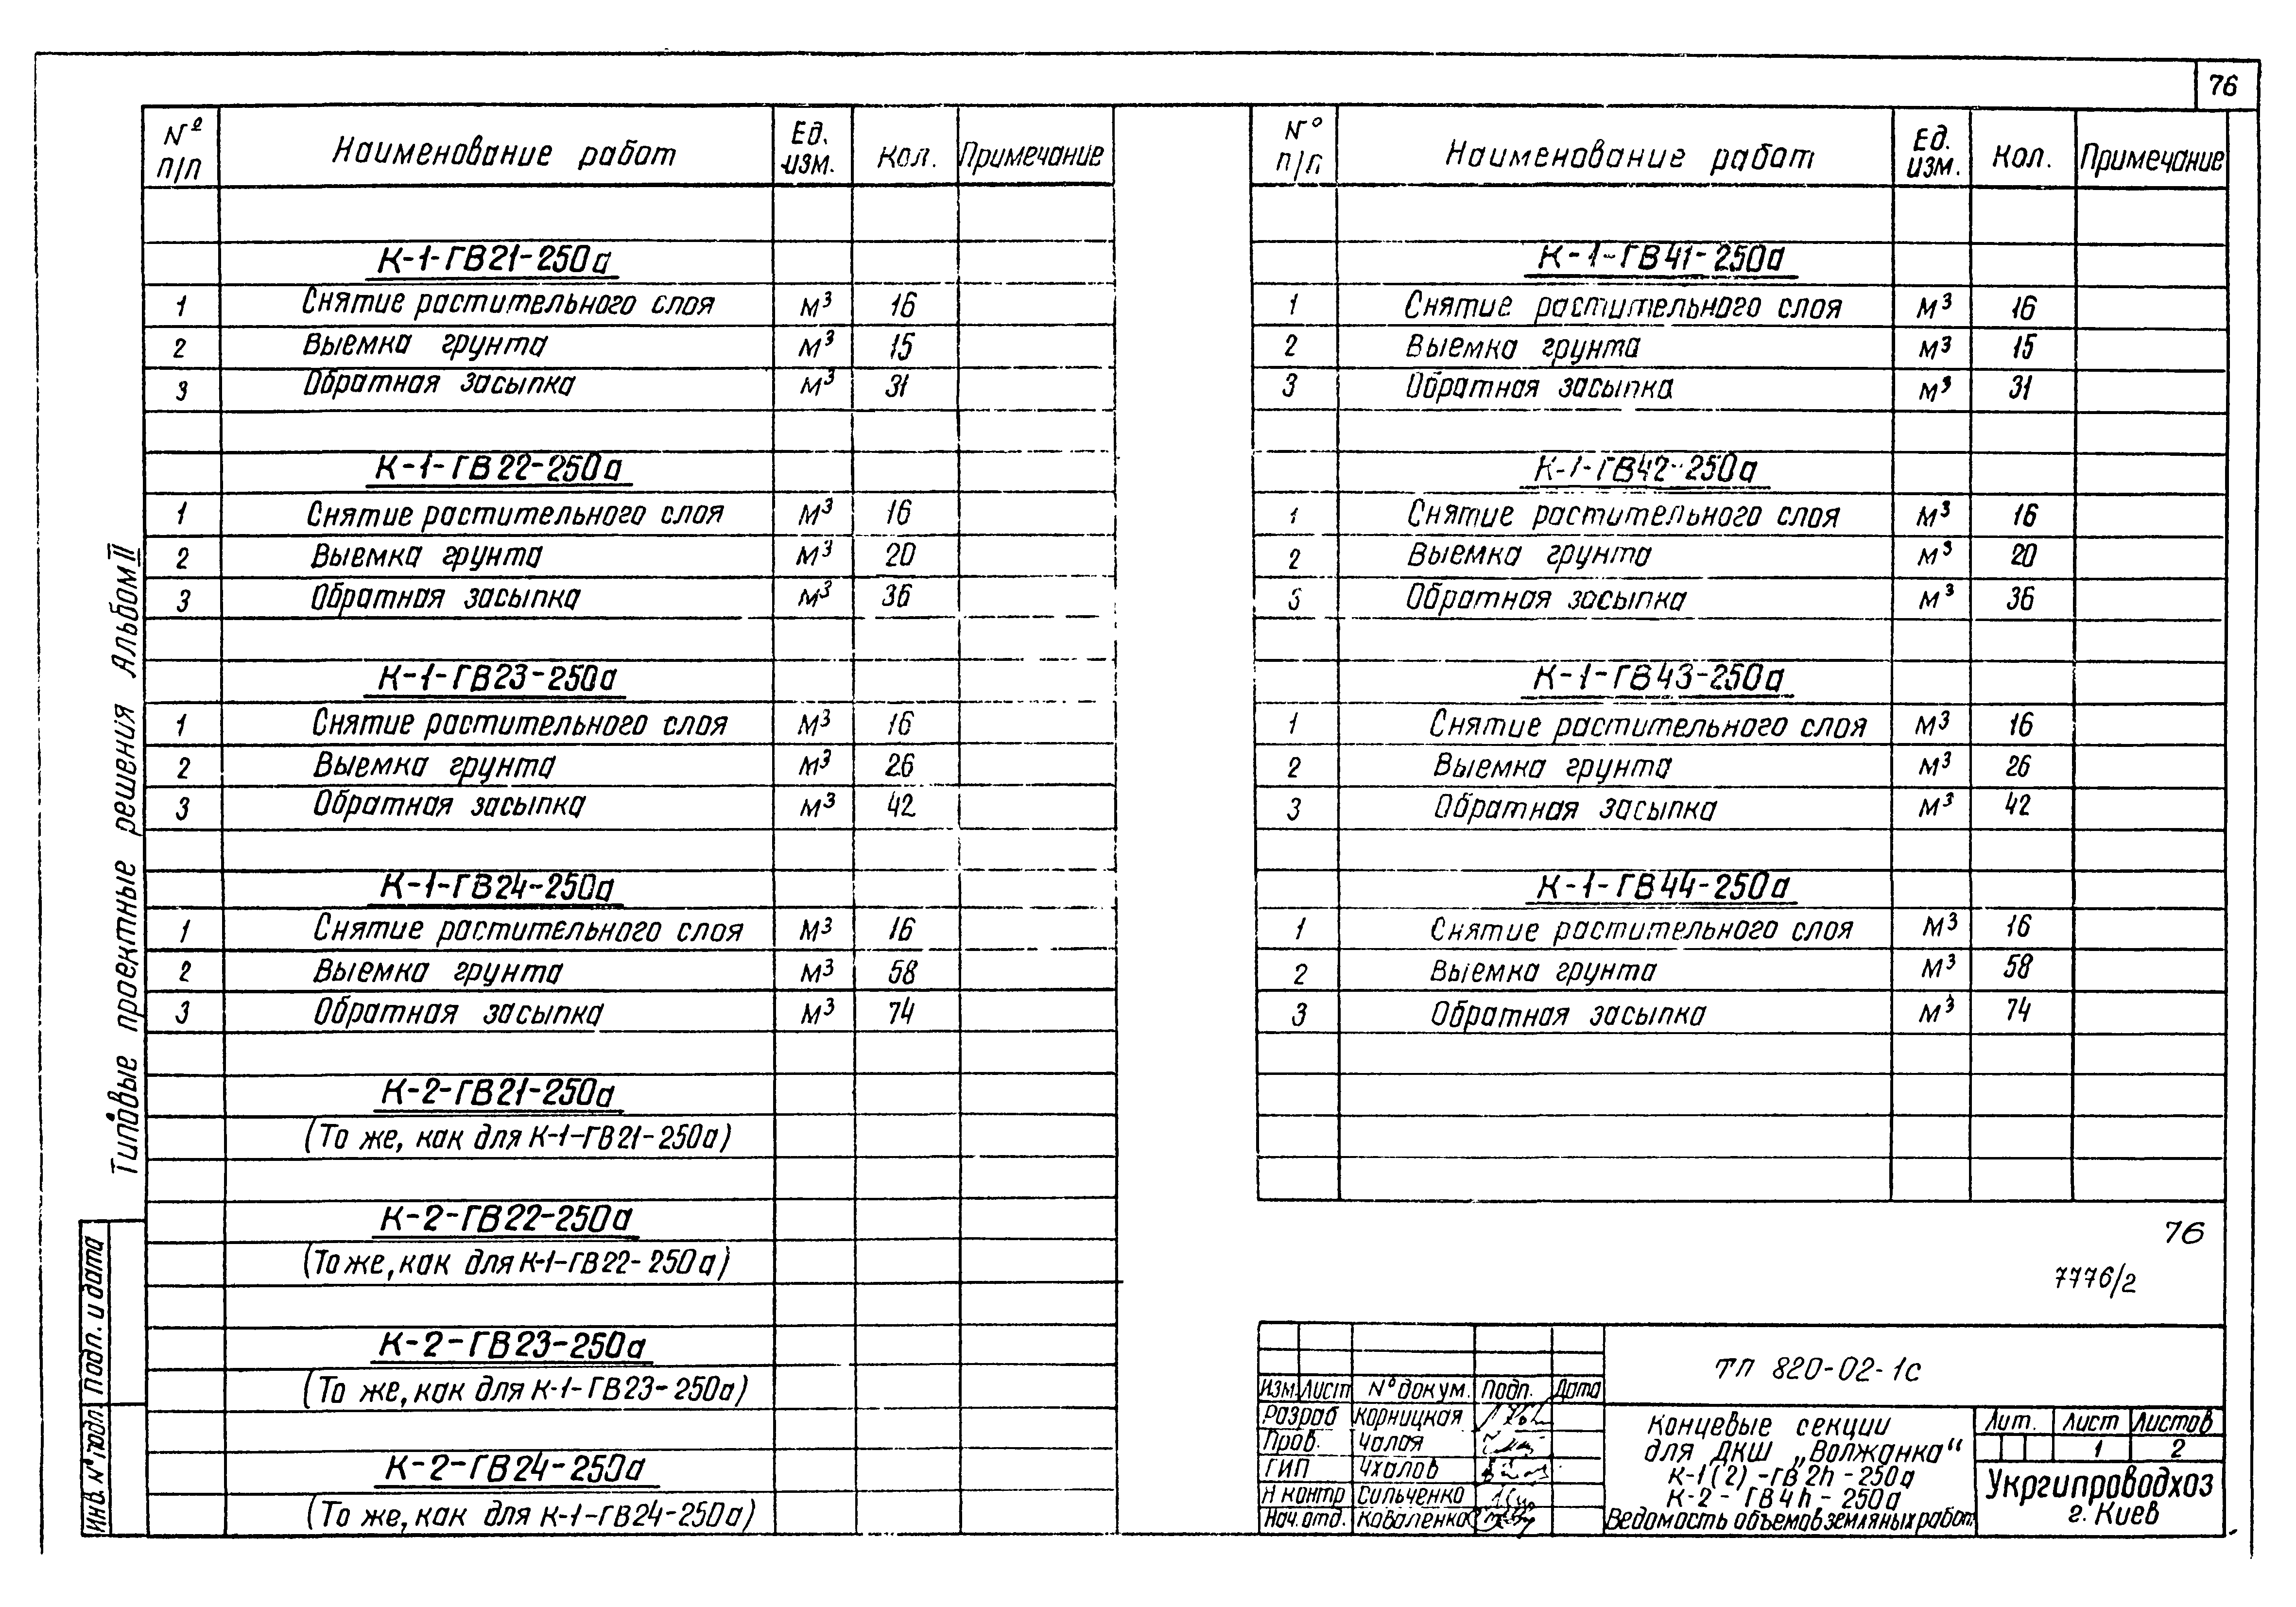 76
№ п/п Наименование работ Ед. изм. Кол. Примечание
К-1-ГВ21-250а
1 Снятие растительного слоя м³ 16
2 Выемка грунта м³ 15
3 Обратная засыпка м³ 31
К-1-ГВ22-250а
1 Снятие растительного слоя м³ 16
2 Выемка грунта м³ 20
3 Обратная засыпка м³ 36
К-1-ГВ23-250а
1 Снятие растительного слоя м³ 16
2 Выемка грунта м³ 26
3 Обратная засыпка м³ 42
К-1-ГВ24-250а
1 Снятие растительного слоя м³ 16
2 Выемка грунта м³ 58
3 Обратная засыпка м³ 74
К-2-ГВ21-250а
(То же, как для К-1-ГВ21-250а)
К-2-ГВ22-250а
(То же, как для К-1-ГВ22-250а)
К-2-ГВ23-250а
(То же, как для К-1-ГВ23-250а)
К-2-ГВ24-250а
(То же, как для К-1-ГВ24-250а)
№ п/п Наименование работ Ед. изм. Кол. Примечание
К-1-ГВ41-250а
1 Снятие растительного слоя м³ 16
2 Выемка грунта м³ 15
3 Обратная засыпка м³ 31
К-1-ГВ42-250а
1 Снятие растительного слоя м³ 16
2 Выемка грунта м³ 20
3 Обратная засыпка м³ 36
К-1-ГВ43-250а
1 Снятие растительного слоя м³ 16
2 Выемка грунта м³ 26
3 Обратная засыпка м³ 42
К-1-ГВ44-250а
1 Снятие растительного слоя м³ 16
2 Выемка грунта м³ 58
3 Обратная засыпка м³ 74
76
7776/2
ТП 820-02-1с
Изм. Лист № докум. Подп. Дата
Разраб Корницкая
Пров. Чалая
ГИП Чхалов
Н контр Сильченко
Нач. отд. Коваленко
Концевые секции
для ДКШ „Волжанка“
К-1(2)-ГВ2h-250а
К-2-ГВ4h-250а
Ведомость объемов земляных работ
Лит. Лист Листов
1 2
Укргипроводхоз
г. Киев
Типовые проектные решения Альбом II
Инв. № подл. Подп. и дата